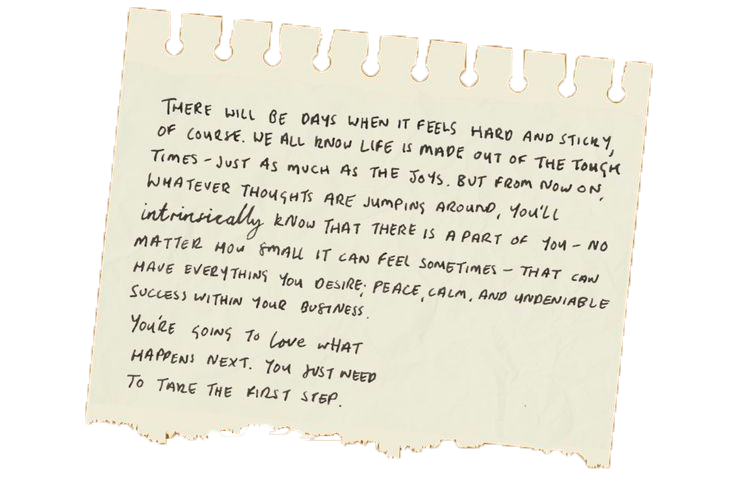 THERE WILL BE DAYS WHEN IT FEELS HARD AND STICKY,
OF COURSE. WE ALL KNOW LIFE IS MADE OUT OF THE TOUGH
TIMES - JUST AS MUCH AS THE JOYS. BUT FROM NOW ON,
WHATEVER THOUGHTS ARE JUMPING AROUND, YOU'LL
intrinsically KNOW THAT THERE IS A PART OF YOU - NO
MATTER HOW SMALL IT CAN FEEL SOMETIMES - THAT CAN
HAVE EVERYTHING YOU DESIRE; PEACE, CALM, AND UNDENIABLE
SUCCESS WITHIN YOUR BUSINESS.
YOU'RE GOING TO love WHAT
HAPPENS NEXT. YOU JUST NEED
TO TAKE THE FIRST STEP.